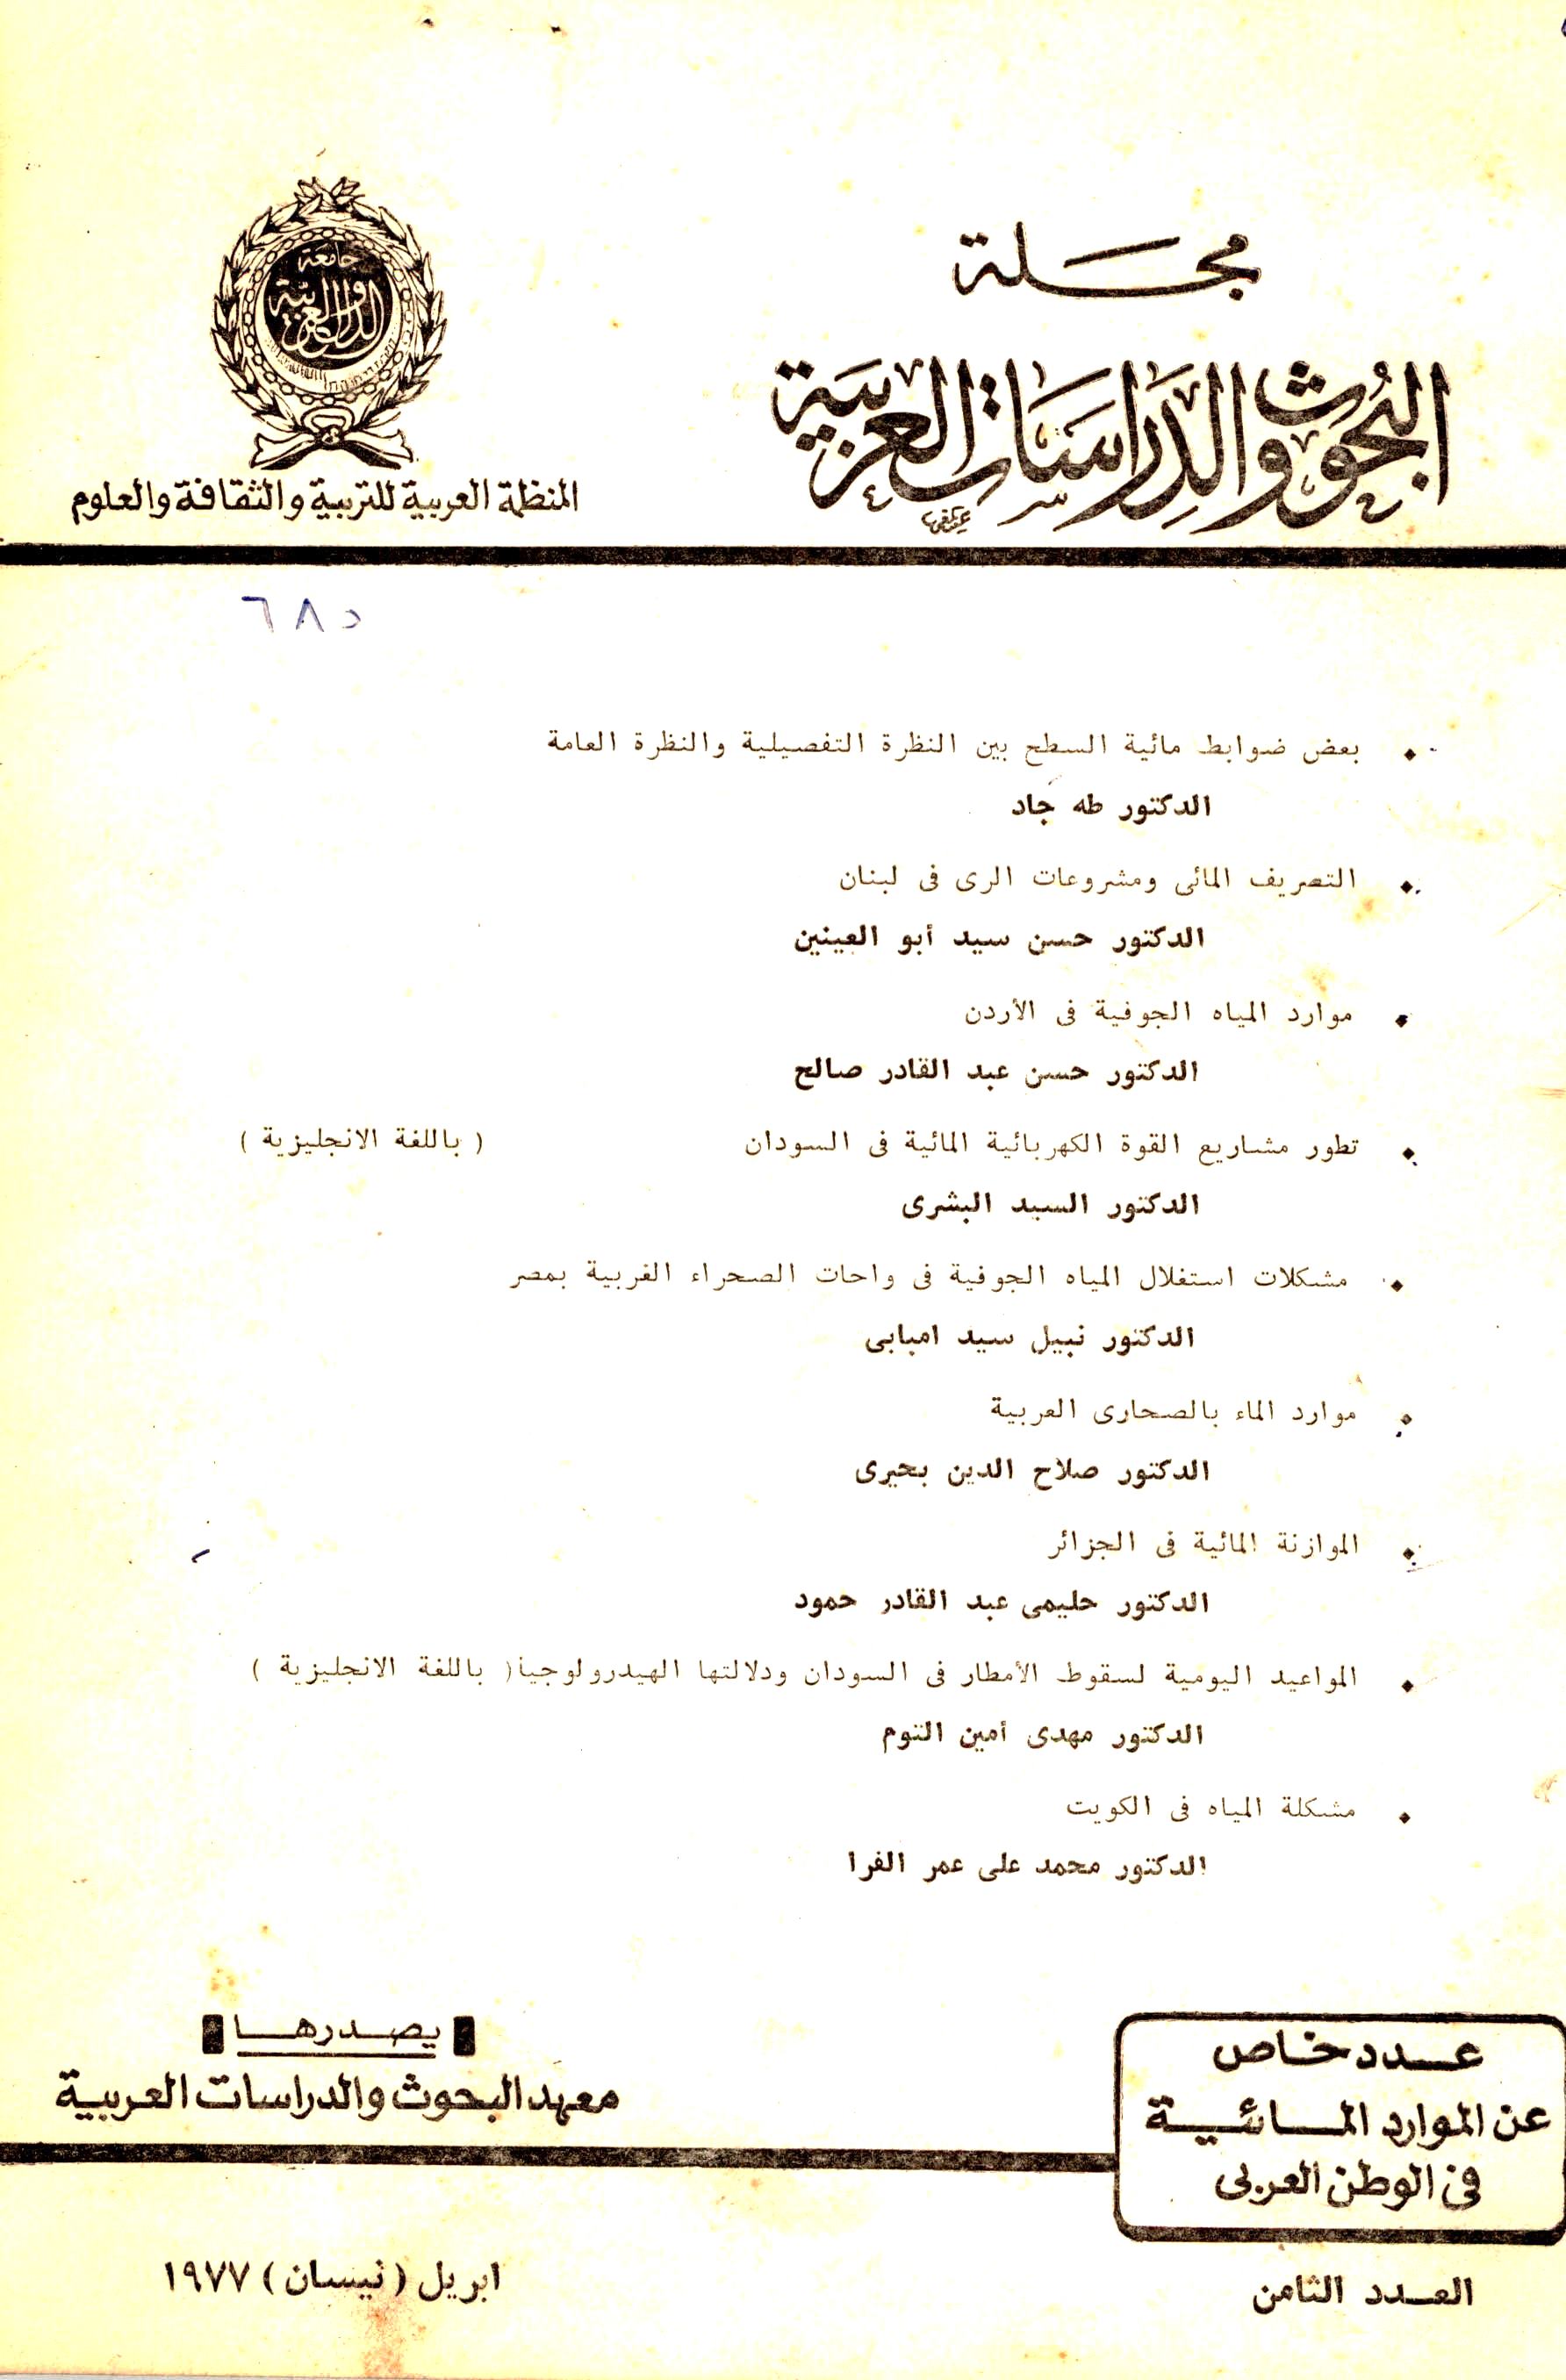 مجلة
البُحُوث وَالدِرَاسَات العَربَيَة
جامعة
الدول العربية
المنظمة العربية للتربية والثقافة والعلوم
٦٨٥
بعض ضوابط مائية السطح بين النظرة التفصيلية والنظرة العامة
الدكتور طه جاد
التصريف المائى ومشروعات الرى فى لبنان
الدكتور حسن سيد أبو العينين
موارد المياه الجوفية فى الأردن
الدكتور حسن عبد القادر صالح
تطور مشاريع القوة الكهربائية المائية فى السودان ( باللغة الانجليزية )
الدكتور السيد البشرى
مشكلات استغلال المياه الجوفية فى واحات الصحراء الغربية بمصر
الدكتور نبيل سيد امبابى
موارد الماء بالصحارى العربية
الدكتور صلاح الدين بحيرى
الموازنة المائية فى الجزائر
الدكتور حليمى عبد القادر حمود
المواعيد اليومية لسقوط الأمطار فى السودان ودلالتها الهيدرولوجية ( باللغة الانجليزية )
الدكتور مهدى أمين التوم
مشكلة المياه فى الكويت
الدكتور محمد على عمر الفرا
يصدرها
معهد البحوث والدراسات العربية
عدد خاص
عن الموارد المائية
فى الوطن العربى
العدد الثامن
ابريل ( نيسان ) ١٩٧٧